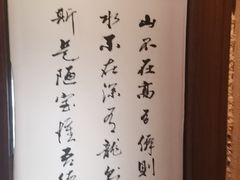 山不在高有僊則
水不在深有龍
斯是陋室惟吾德